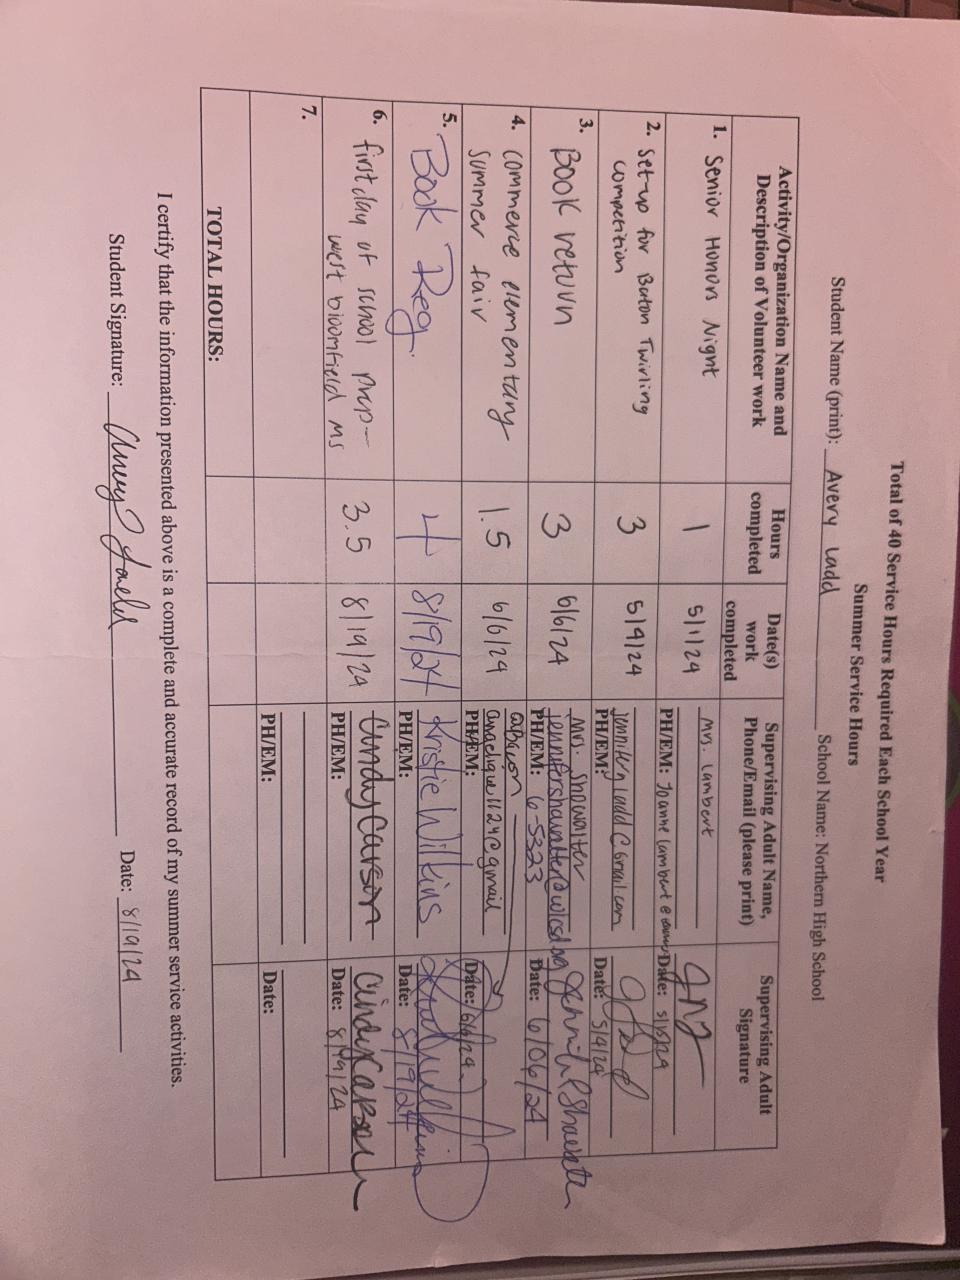 Total of 40 Service Hours Required Each School Year
Summer Service Hours
Student Name (print): Avery Ladd School Name: Northern High School
Activity/Organization Name and Description of Volunteer work
Hours completed
Date(s) work completed
Supervising Adult Name, Phone/Email (please print)
Supervising Adult Signature
1. Senior Honors Night
1
5/1/24
Mrs. Lambert
PH/EM: Joanne lambert @
Date:
2. Set-up for Baton Twirling
competition
3
5/4/24
jennifer ladd @ gmail.com
PH/EM:
Date: 5/4/24
3. Book return
3
6/6/24
Mrs. Showalter
jennifershowalter@wlcsd.org
PH/EM: 6-5323
Date: 6/06/24
4. commerce elementary
summer fair
1.5
6/6/24
PH/EM:
Date: 6/6/24
5. Book Reg.
4
8/9/24
Kristie Wilkins
PH/EM:
Date: 8/9/24
6. first day of school prep-
west bloomfield MS
3.5
8/19/24
Cindy Carson
PH/EM:
Cindy Carson
Date: 8/19/24
7.
PH/EM:
Date:
TOTAL HOURS:
I certify that the information presented above is a complete and accurate record of my summer service activities.
Student Signature: Date: 8/19/24